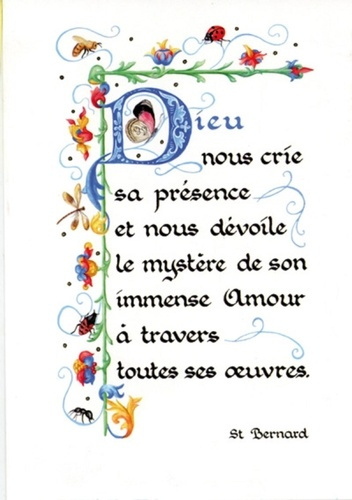 Dieu
nous crie
sa présence
et nous dévoile
le mystère de son
immense Amour
à travers
toutes ses œuvres.
St Bernard